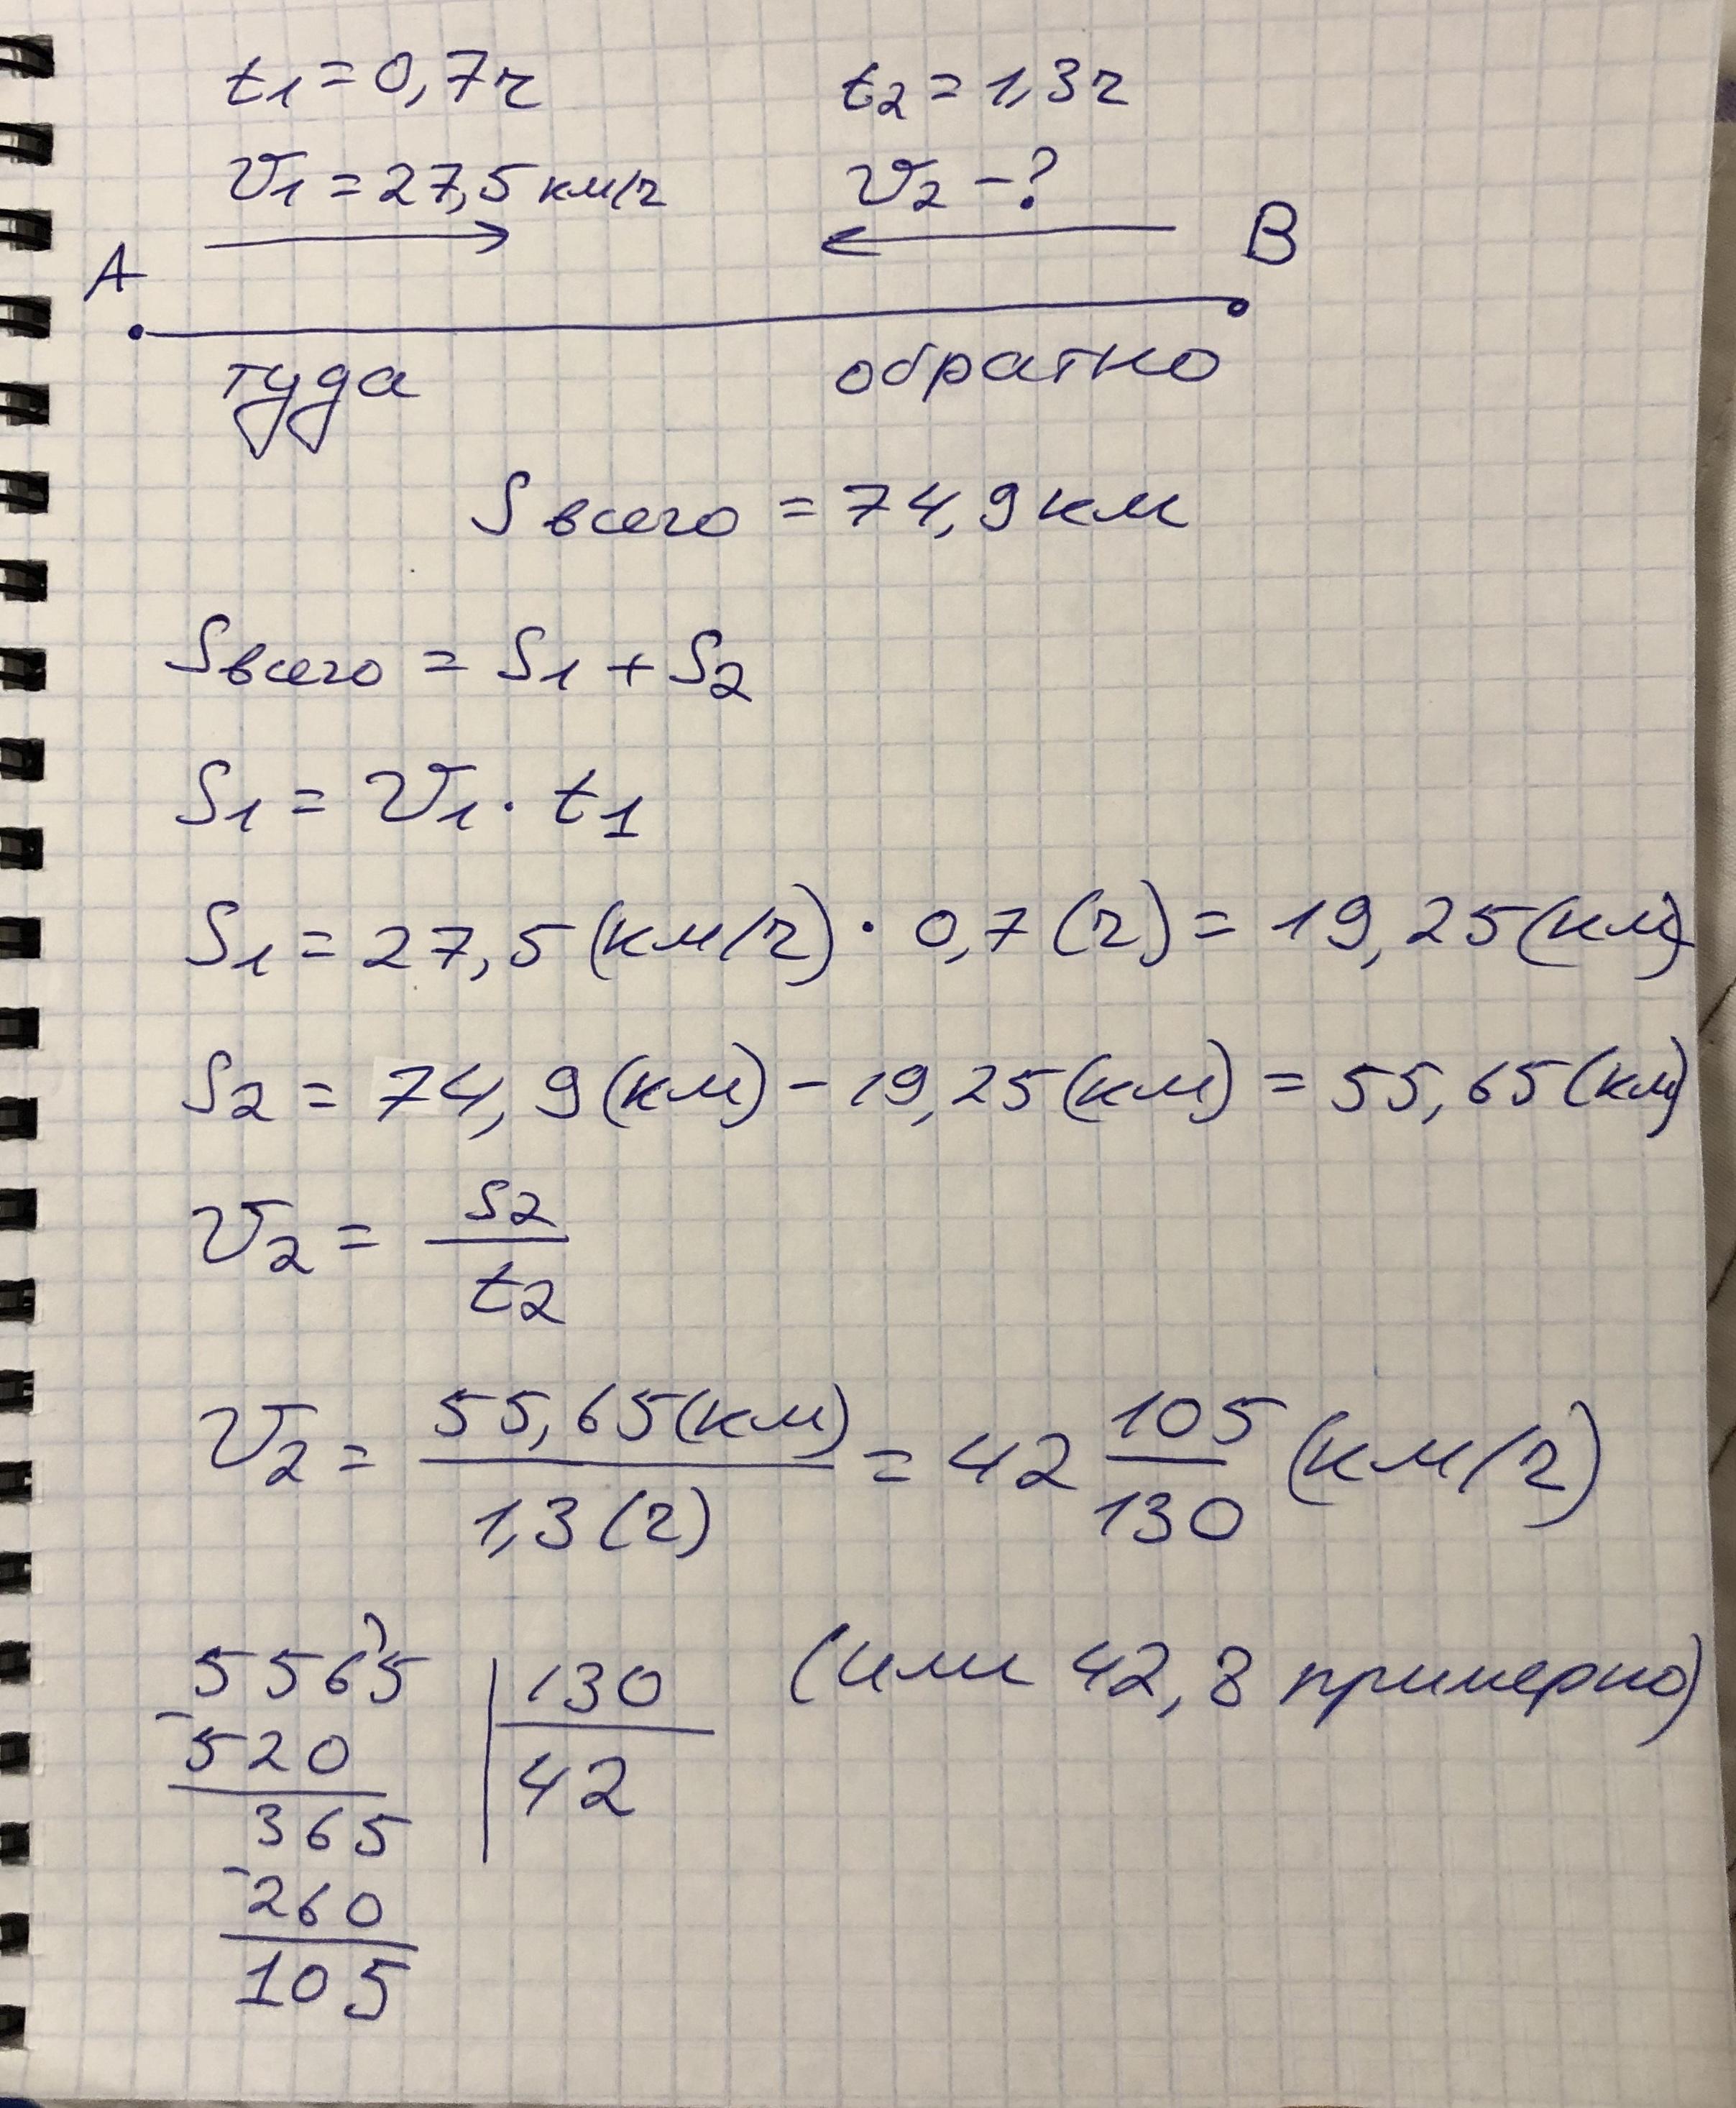 t1 = 0,7ч t2 = 1,3ч
v1 = 27,5 км/ч v2 - ?
A B
туда обратно
Sвсего = 74,9 км
Sвсего = S1 + S2
S1 = v1 · t1
S1 = 27,5 (км/ч) · 0,7 (ч) = 19,25 (км)
S2 = 74,9 (км) - 19,25 (км) = 55,65 (км)
v2 = S2 / t2
v2 = 55,65 (км) / 1,3 (ч) = 42 105/130 (км/ч)
(или 42,8 примерно)
5565 | 130
- 520 | 42
365
- 260
105